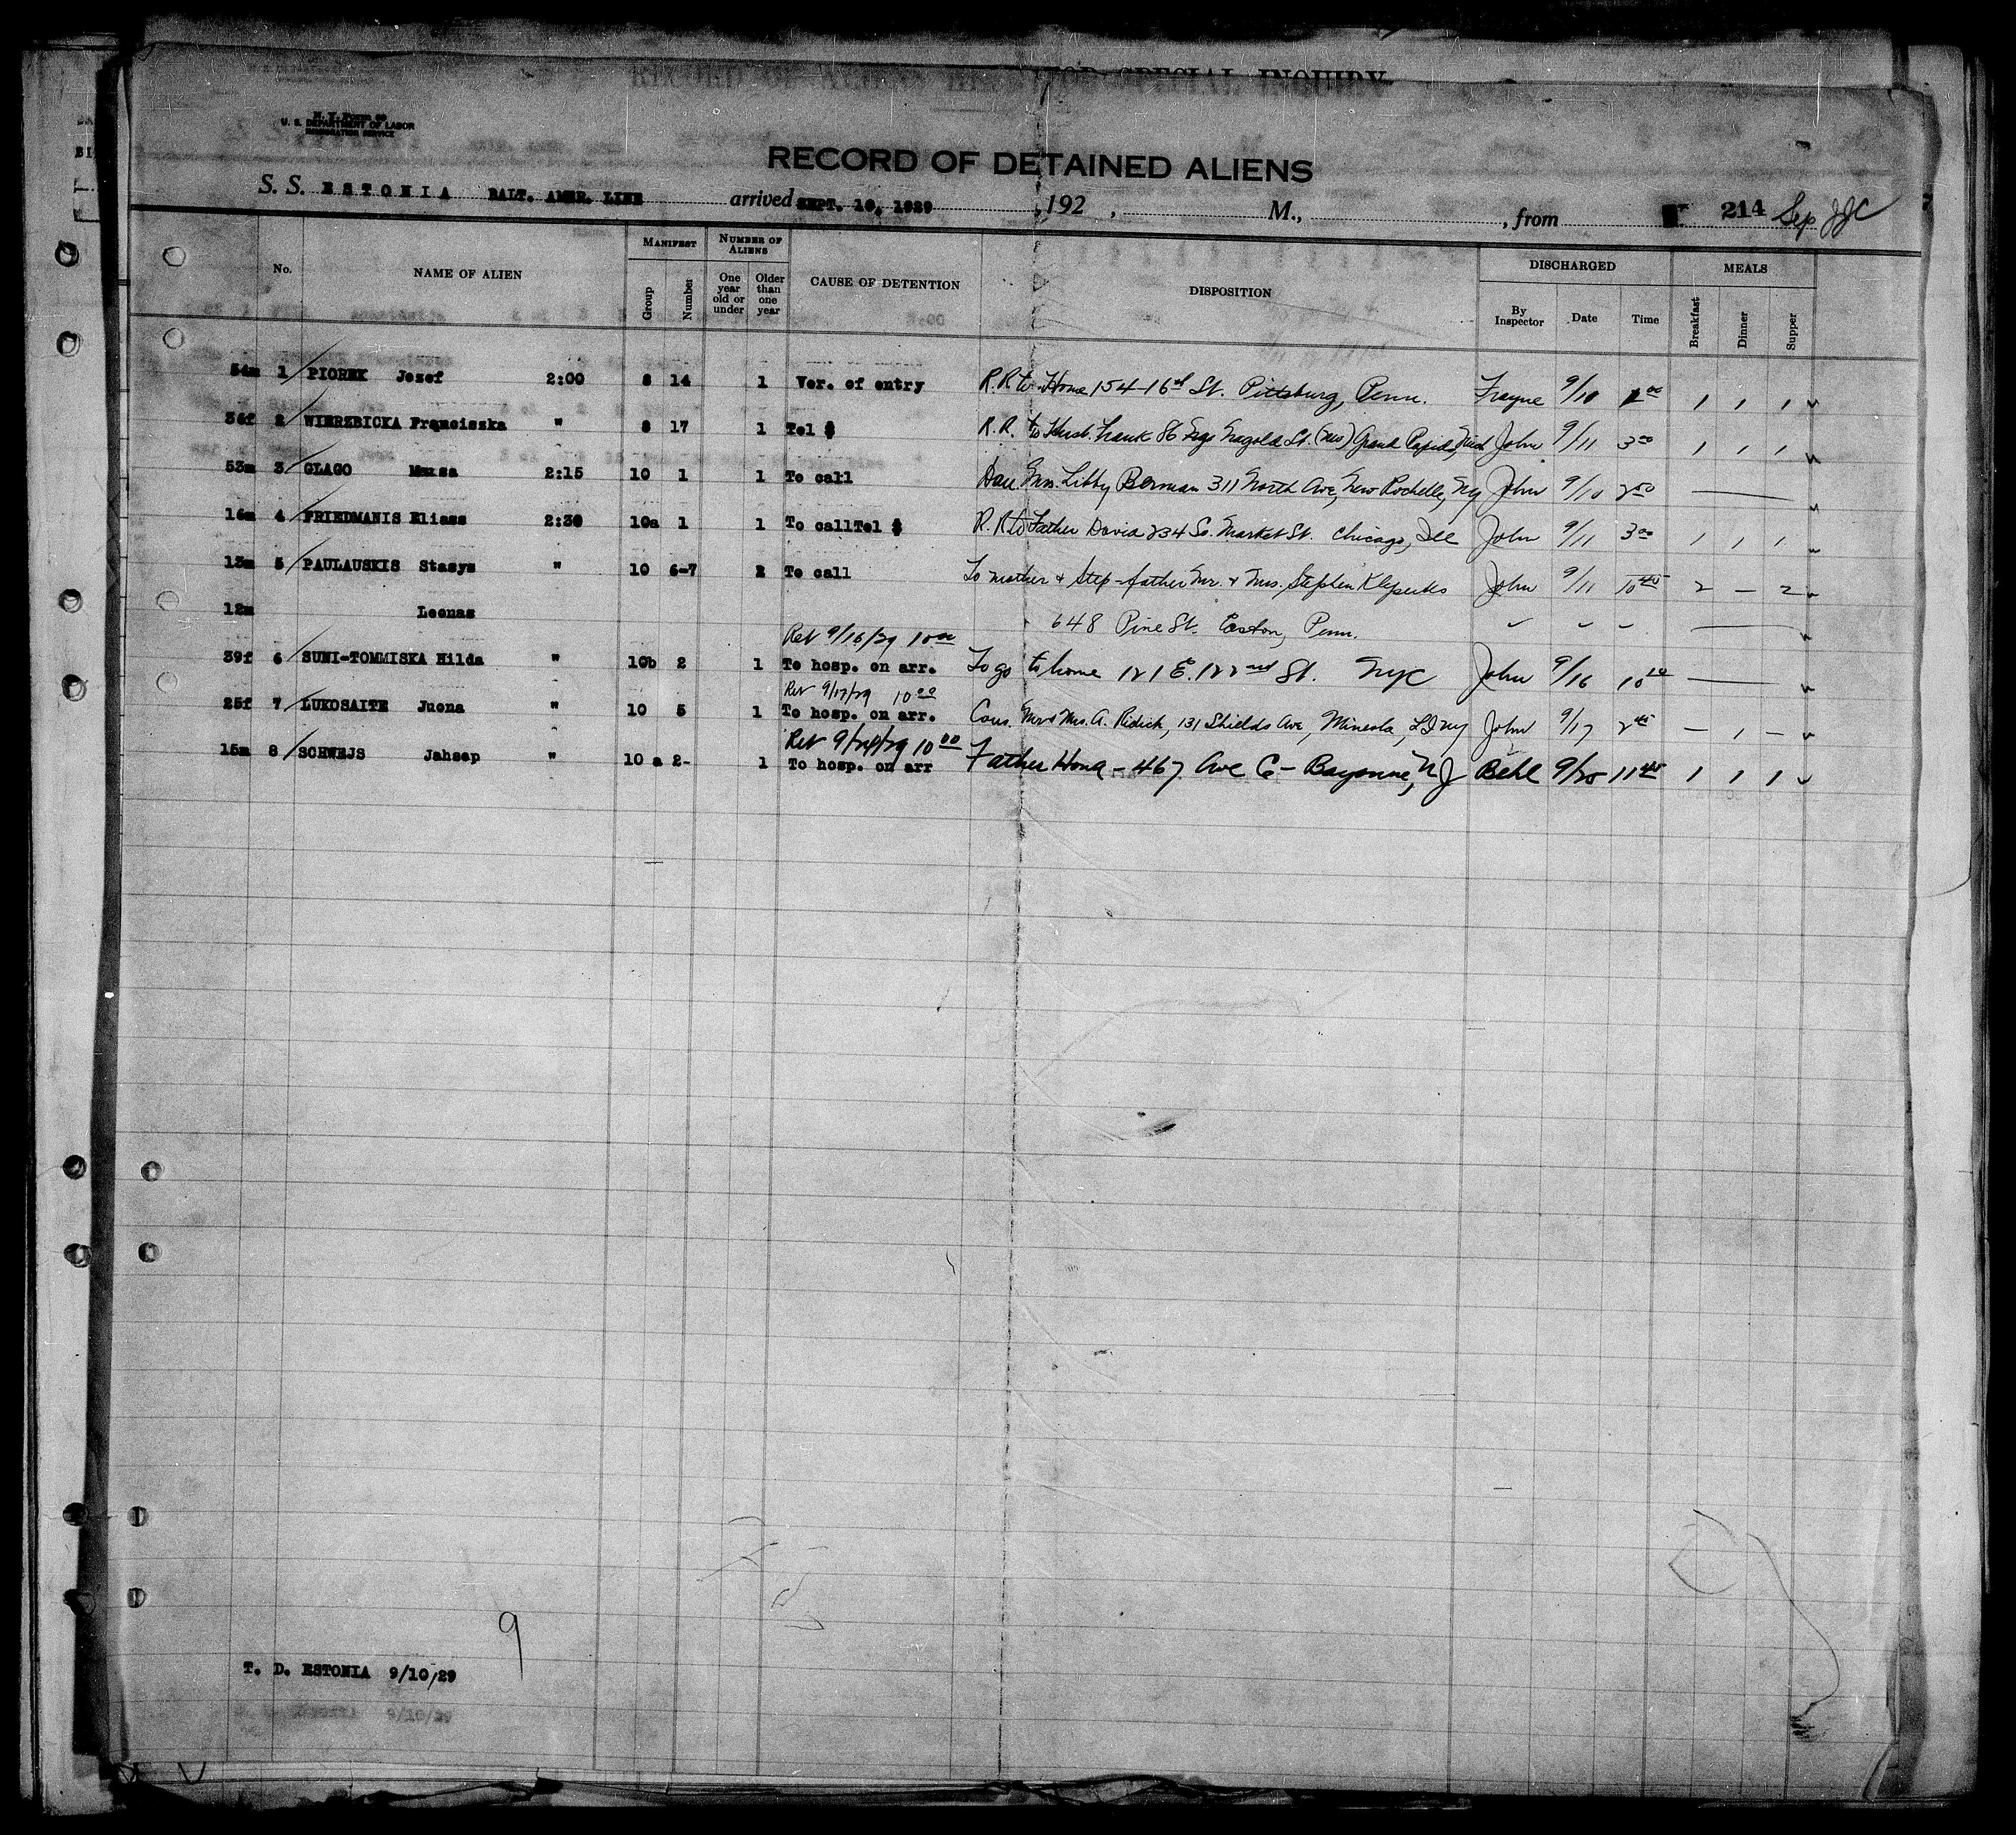 RECORD OF ALIENS HELD FOR SPECIAL INQUIRY
U. S. DEPARTMENT OF LABOR
IMMIGRATION SERVICE
RECORD OF DETAINED ALIENS
S. S. ESTONIA BALT. AMER. LINE arrived SEPT. 10, 1929, 192 , M., , from 214 Sep JJC
No. NAME OF ALIEN MANIFEST Group Number NUMBER OF ALIENS One year old or under Older than one year CAUSE OF DETENTION DISPOSITION DISCHARGED By Inspector Date Time MEALS Breakfast Dinner Supper
54m 1 PIOREK Jozef 2:00 8 14 1 Ver. of entry R.R. to Home 154-16th St. Pittsburg, Penn. Frayne 9/10 2 00 1 1 1
36f 2 WIERZBICKA Franciszka " 8 17 1 Tel $ R.R. to Husb. Frank 86 Grand Rapids, Mich John 9/11 3 00 1 1 1
53m 3 GLAGO 2:15 10 1 1 To call Dau. Mrs. Libby Berman 311 North Ave, New Rochelle, NY John 9/10 2 50
16m 4 FRIEDMANIS Eliass 2:30 10a 1 1 To call Tel $ R.R. to Father David 234 So. Market St. Chicago, Ill John 9/11 3 00 1 1 1
13m 5 PAULAUSKIS Stasys " 10 6-7 2 To call To mother & Step-father Mr. & Mrs. Stephen John 9/11 10 45 2 - 2
12m Leonas 648 Pine St. Easton, Penn.
Ret 9/16/29 10 00
39f 6 SUNI-TOMMISKA Hilda " 10b 2 1 To hosp. on arr. To go to home 121 E. 122nd St. NYC John 9/16 10 10
Ret 9/17/29 10 00
25f 7 LUKOSAITE Juona " 10 5 1 To hosp. on arr. Cous. Mr & Mrs. A. Ridick, 131 Shields Ave, Mineola, LI NY John 9/17 2 45 - 1 -
Ret 9/24/29 10 00
15m 8 SCHWEJS Jahsep " 10 a 2- 1 To hosp. on arr Father Hona - 467 Ave C - Bayonne, NJ Behl 9/25 11 45 1 1 1
9
T. D. ESTONIA 9/10/29